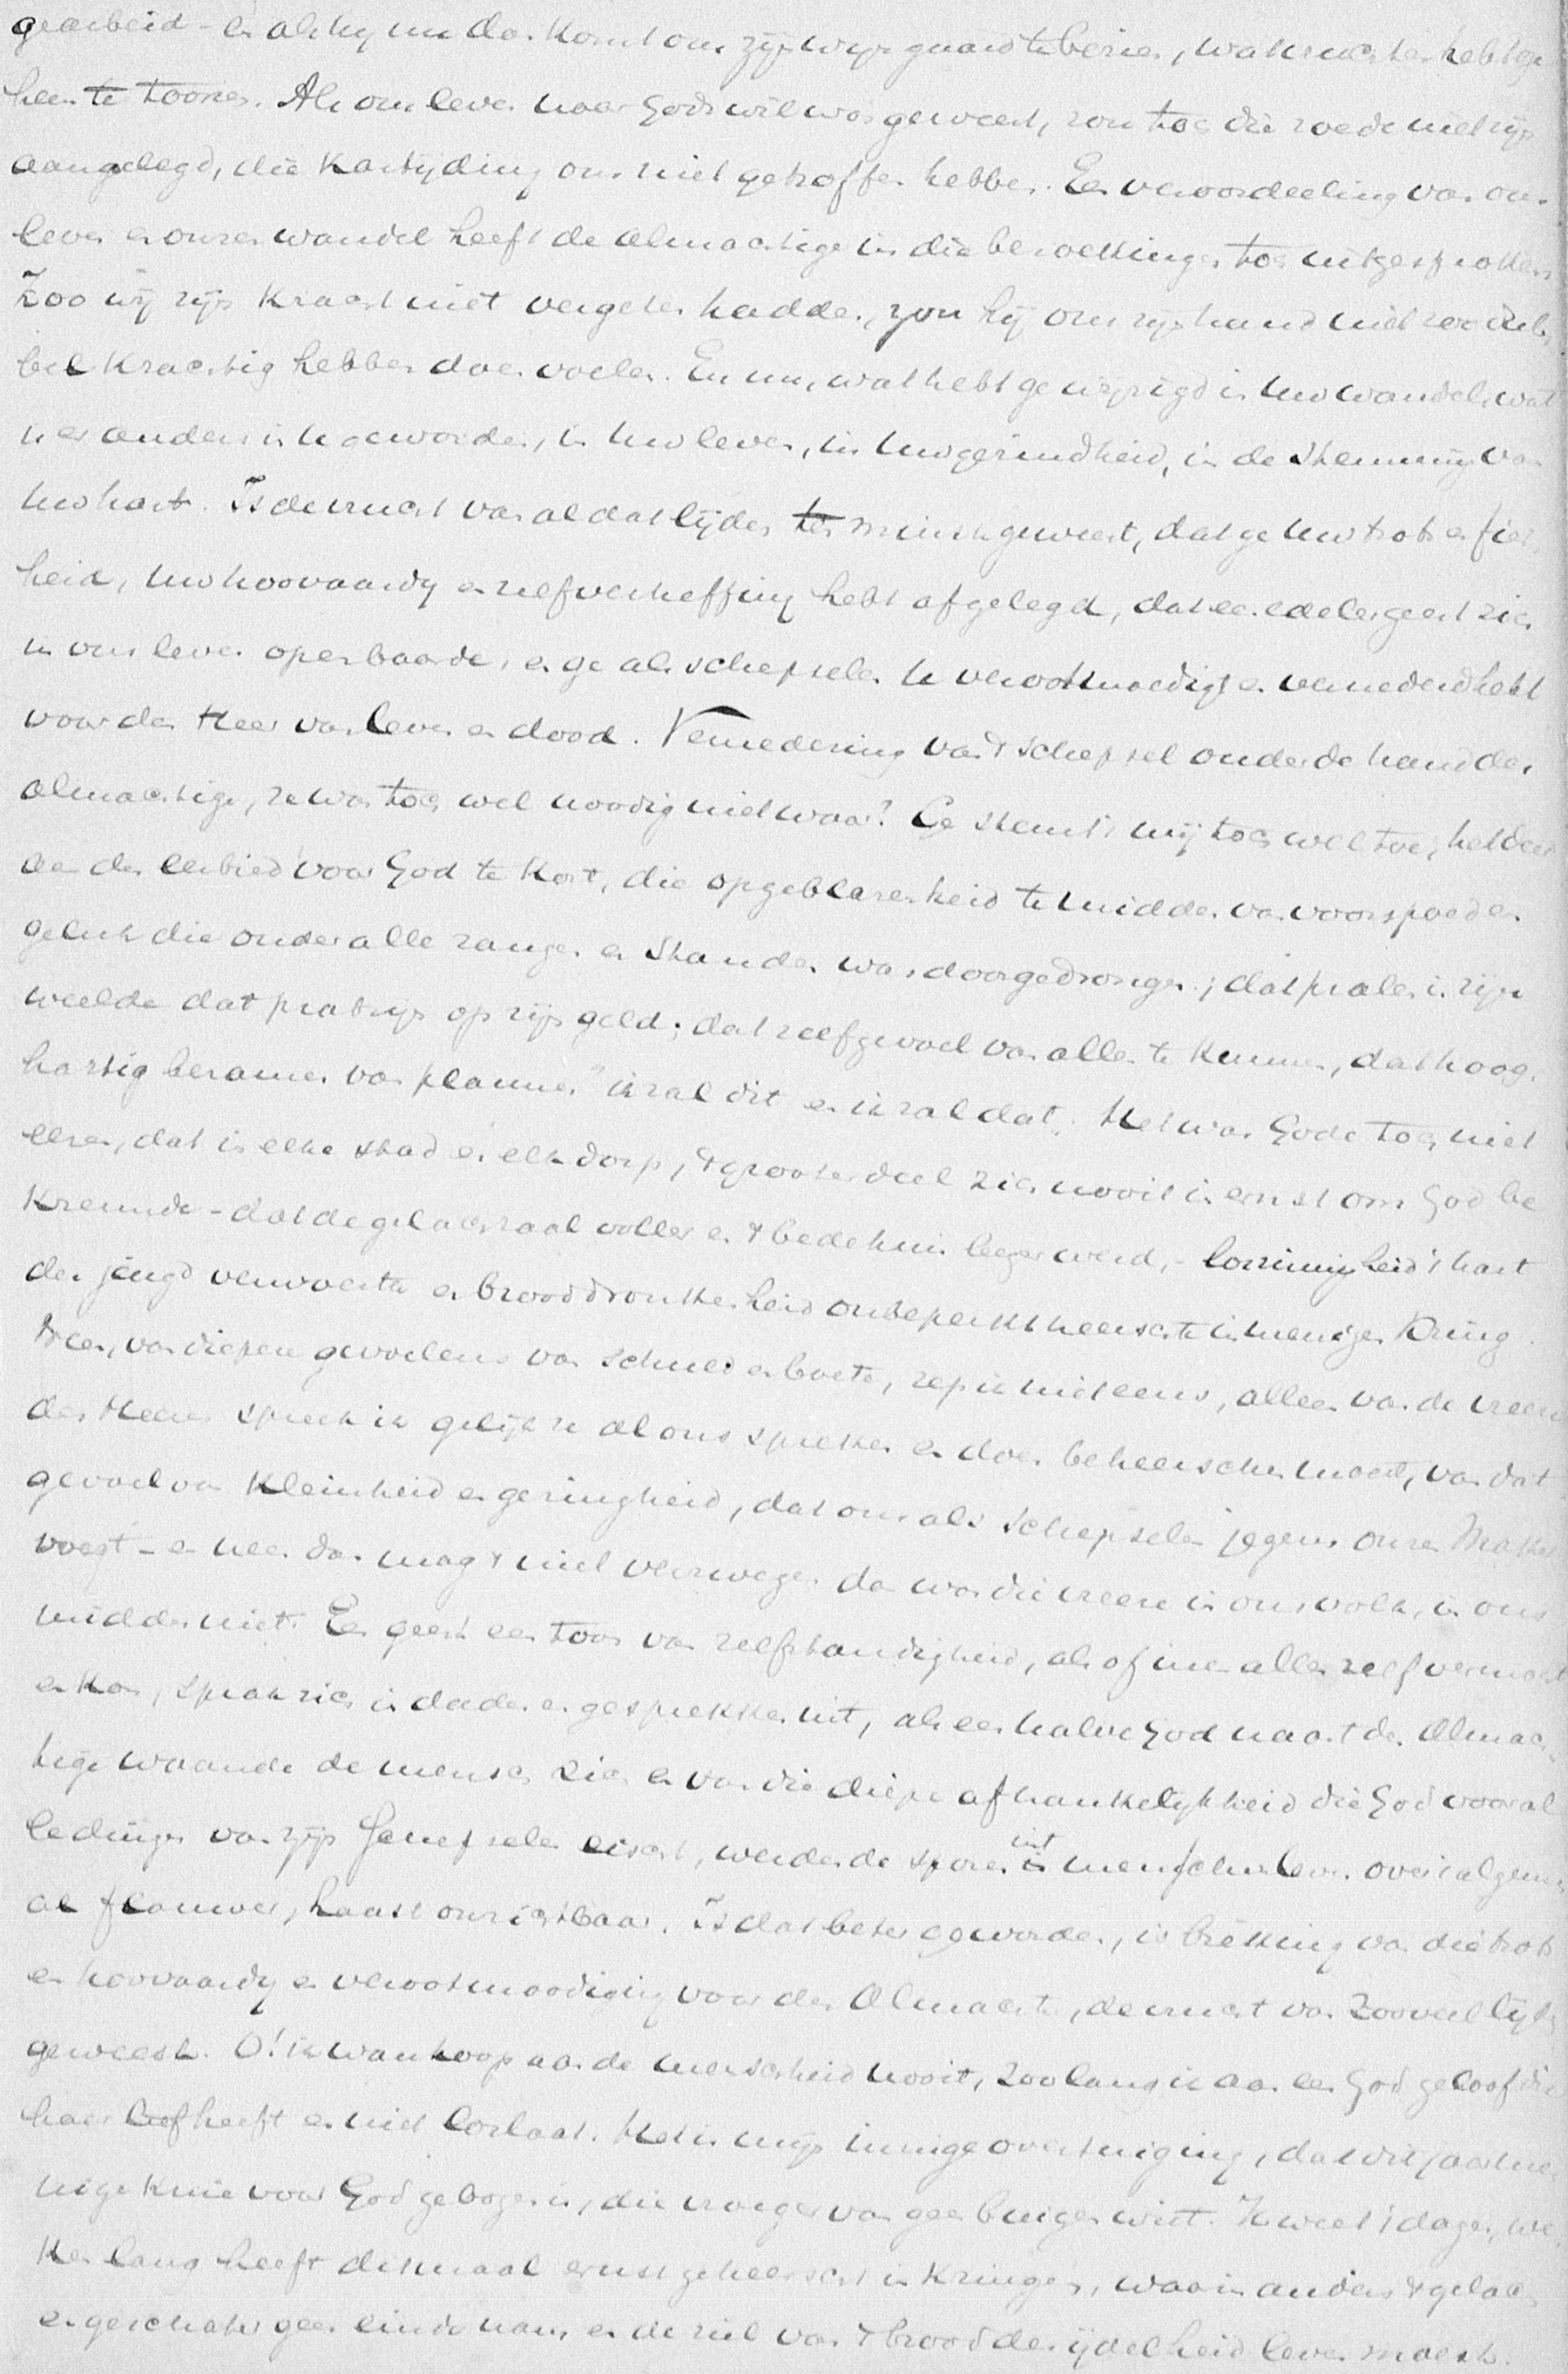 gearbeid - en als hij nu dan komt om zijn wijngaard te bezien, wat vruchten hebt ge
hem te toonen. Als ons leven naar Gods wil was geweest, zou toch die roede niet zijn
aangelegd, die kastijding ons niet getroffen hebben. Een veroordeeling van ons
leven en onzen wandel heeft de almachtige in die bezoekingen toch uitgesproken
Zoo wij zijn kracht niet vergeten hadden, zou hij ons zijn hand niet zoo dub-
bel krachtig hebben doen voelen. En nu, wat hebt ge gewijzigd in uw wandel, wat
is er anders in u geworden, in uw leven, in uw gezindheid, in de stemming van
uw hart. Is de vrucht van al dat lijden ten minste geweest, dat ge uw trots en fier-
heid, uw hoovaardij en zelfverheffing hebt afgelegd, dat een edeler geest zich
in ons leven openbaarde, en ge als schepselen u verootmoedigt en vernederd hebt
voor den Heer van leven en dood. Vernedering van 't schepsel onder de hand des
almachtigen, ze was toch wel noodig niet waar? Ge stemt 't mij toch wel toe, het deed
aan den eerbied voor God te kort, die opgeblazenheid te midden van voorspoed en
geluk die onder alle rangen en standen was doorgedrongen; dat pralen in zijn
weelde dat prat zijn op zijn geld; dat zelfgevoel van alles te kunnen, dat hoog-
hartig beramen van plannen "ik zal dit en ik zal dat". Het was Gode toch niet
eeren, dat in elke stad en elk dorp, 't grooter deel zich nooit in ernst om God be
kreunde - dat de gelachzaal voller en 't bedehuis leeger werd, - lossinnigheid 't hart
der jeugd verwoestte en brooddronkenheid onbeperkt heerschte in menigen kring.
Neen, van diepere gevoelens van schuld en boete, rep ik niet eens, alleen van de vreeze
des Heeren spreek ik gelijk ze al ons spreken en doen beheerschen moest, van dat
gevoel van kleinheid en geringheid, dat ons als schepselen jegens onzen Maker
voegt - en neen dan mag 't niet verzwegen dan was die vreeze in ons volk, in ons
midden niet. Een geest een toon van zelfstandigheid, als of men alles zelf vermocht
en kon, sprak zich in daden en gesprekken uit, als een halve God naast den Almach-
tige waande de mensch zich en van die diepe afhankelijkheid die God vooral
ledinge van zijn schepselen eischt, werden de sporen uit menschenleven over 't algemeen
al flauwer, haast onzichtbaar. Is dat beter geworden, is breking van die trots
en hoovaardij en verootmoediging voor den Almachte, de vrucht van zooveel lijden
geweest. O! ik wanhoop aan de menschheid nooit, zoolang ik aan een God geloof die
haar lief heeft en niet loslaat. Het is mijn innige overtuiging, dat dit jaar me
nige knie voor God gebogen is, die vroeger van geen buigen wist. Ik weet 't dagen, we
ken lang heeft ditmaal ernst geheerscht in kringen, waarin anders 't gelach
en geschater geen einde nam en de ziel van 't brood der ijdelheid leven moest.